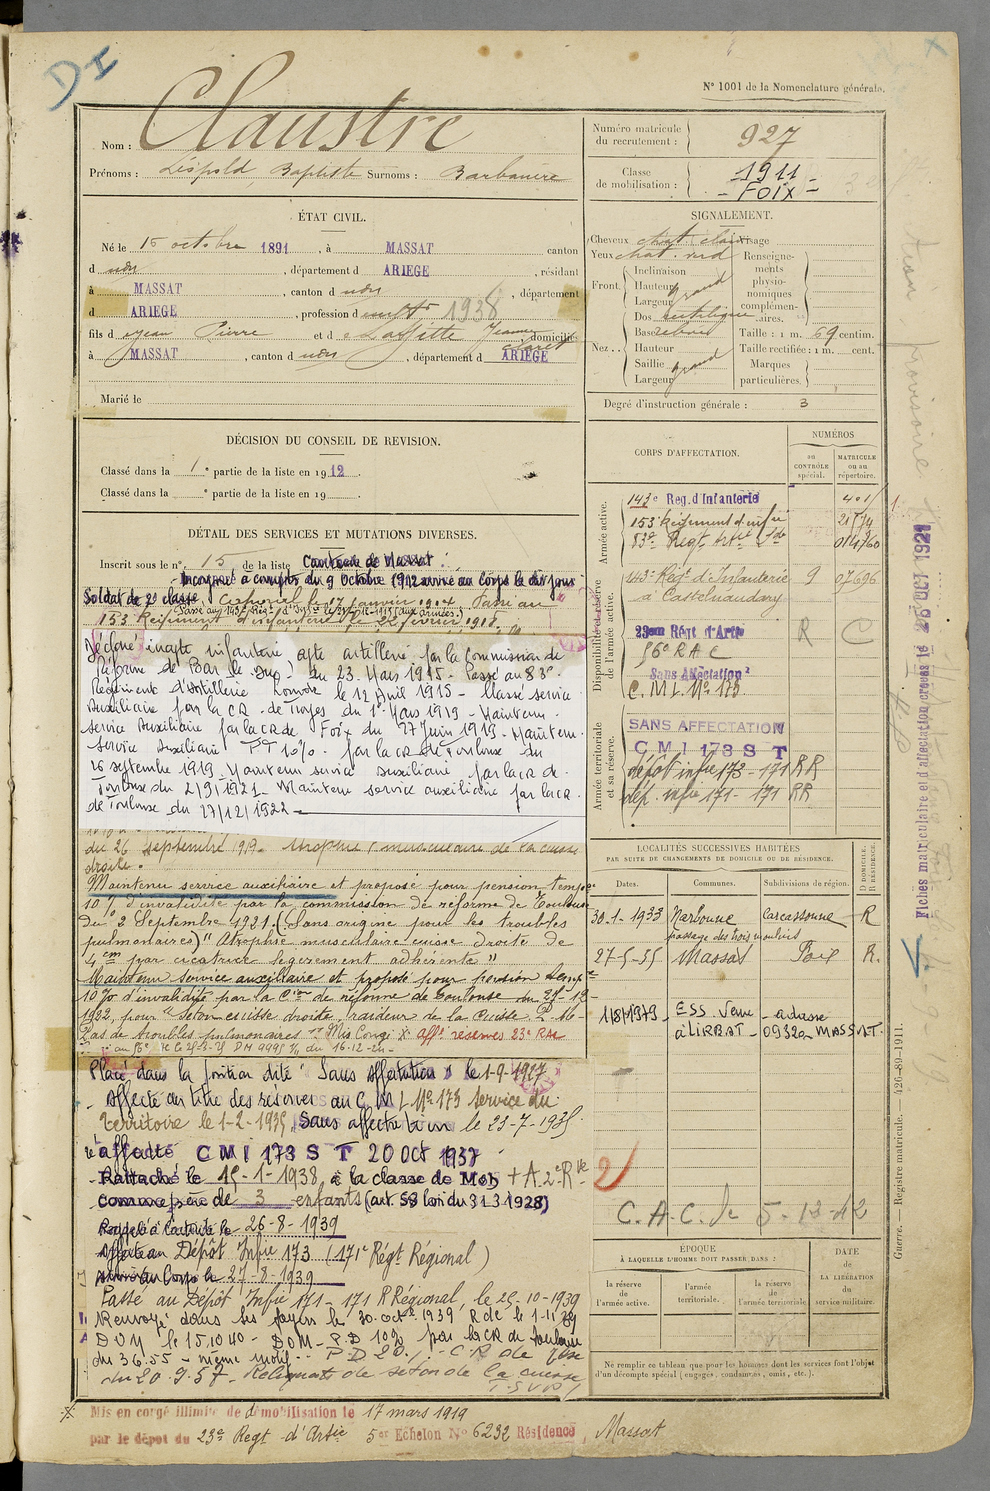 DI
N° 1001 de la Nomenclature générale.
Nom : Claustre
Prénoms : Léopold, Baptiste Surnoms : Barbanère
Numéro matricule du recrutement : 927
Classe de mobilisation : 1911 - FOIX -
ÉTAT CIVIL.
Né le 15 octobre 1891, à MASSAT canton
d udit, département d ARIEGE, résidant
à MASSAT, canton d udit, département
d ARIEGE, profession d 1938
fils d Jean Pierre et d e Laffitte Jeanne domiciliés
à MASSAT, canton d udit, département d ARIEGE
Marié le
SIGNALEMENT.
Cheveux chat. clair Visage
Yeux chat. verd Renseignements physionomiques complémentaires.
Front.
Inclinaison
Hauteur grand
Largeur
Nez..
Dos rectiligne
Base relevée
Hauteur
Saillie grand
Largeur
Taille : 1 m. 69 centim.
Taille rectifiée : 1 m. cent.
Marques particulières.
Degré d'instruction générale : 3
DÉCISION DU CONSEIL DE REVISION.
Classé dans la 1e partie de la liste en 1912
Classé dans la e partie de la liste en 19 .
DÉTAIL DES SERVICES ET MUTATIONS DIVERSES.
Inscrit sous le n° 15 de la liste Canton de Massat
Incorporé à compter du 9 Octobre 1912 arrivé au Corps le dit jour
Soldat de 2e classe. Caporal le 17 janvier 1914 Passé au
153 Régiment d'infanterie le
Déclaré inapte infanterie apte artillerie par la Commission de
Réforme de Bar le Duc du 23 Mars 1915 - Passé au 83e
Régiment d'Artillerie Lourde le 12 Avril 1915 - Classé service
Auxiliaire par la CR de Troyes du 1er Mars 1919 - Maintenu
service Auxiliaire par la CR de Foix du 27 Juin 1919 - Maintenu
Service Auxiliaire 10% par la CR de Toulouse du
26 septembre 1919. Maintenu service Auxiliaire par la CR de
Toulouse du 2/9/1921 - Maintenu service auxiliaire par la CR
de Toulouse du 27/12/1922 -
du 26 septembre 1919. Atrophie musculaire de la cuisse
droite.
Maintenu service auxiliaire et proposé pour pension temp.re
10% d'invalidité par la commission de réforme de Toulouse
du 2 Septembre 1921. (Sans origine pour les troubles
pulmonaires) " Atrophie musculaire cuisse droite de
4 cm par cicatrice légèrement adhérente "
Maintenu service auxiliaire et proposé pour pension temp.re
10% d'invalidité par la C.ion de réforme de Toulouse du 27-12-
1922, pour " Seton cuisse droite, raideur de la Cuisse.
Pas de troubles pulmonaires Mis Congé Affé réserves 23e RA
Placé dans la position dite " Sans Affectation " le 1-9-1927
Affecté au titre des réserves au C M I N° 173 Service du
Territoire le 1-2-1935, Sans affectation le 23-7-1935.
réaffecté CMI 173 S T 20 Oct 1937
Rattaché le 15-1-1938, à la classe de Mob
comme père de 3 enfants (art. 58 loi du 31 3 1928)
Rappelé à l'activité le 26-8-1939
Affecté au Dépôt Infie 173 (171e Régt Régional)
Arrivé au Corps le 27-8-1939
Passé au Dépôt Infie 171 - 171 R Régional, le 25-10-1939
Renvoyé dans ses foyers le 30 octre 1939, RDC le 1-11-39
DOM le 15.10.40 - DOM - P.D 10% par la CR de Toulouse
du 3 6.55 - même motif - P D 20% - C.R de
du 20.9.57. Reliquats de seton de la cuisse
T.S.V.P.
CORPS D'AFFECTATION.
NUMÉROS
au CONTRÔLE spécial.
MATRICULE ou au répertoire.
Armée active.
143e Reg. d'Infanterie 401
153e Régiment d'infrie
83e Regt Artie Lde
Disponibilité et réserve de l'armée active.
143e Régt d'Infanterie 9 07696
à Castelnaudary
23eme Régt d'Artie R C
56e RAC
Sans Affectation
C. M I. N° 173
Armée territoriale et sa réserve.
SANS AFFECTATION
CMI 173 S T
dépôt infie 173 - 171 RR
dép. infie 171 - 171 RR
LOCALITÉS SUCCESSIVES HABITÉES
PAR SUITE DE CHANGEMENTS DE DOMICILE OU DE RÉSIDENCE.
Dates. Communes. Subdivisions de région. D DOMICILE. R RÉSIDENCE.
30-1-1933 Narbonne Carcassonne R
passage des trois moulins
27-5-35 Massat Foix R.
ESS Veuve - adresse
à LIRBAT - 09320 MASSAT
2
C. A. C. le 5-12-42
ÉPOQUE
À LAQUELLE L'HOMME DOIT PASSER DANS :
la réserve de l'armée active.
l'armée territoriale.
la réserve de l'armée territoriale
DATE de LA LIBÉRATION du service militaire.
Ne remplir ce tableau que pour les hommes dont les services font l'objet d'un décompte spécial (engagés, condamnés, omis, etc.).
Mis en congé illimité de démobilisation le 17 mars 1919
par le dépôt du 23e Regt d'Artie 5er Echelon N° 6232 Résidence, Massat
Fiches matriculaire et d'affectation créées le 26 OCT 1921
Guerre. — Registre matricule. — 426-89-1911.